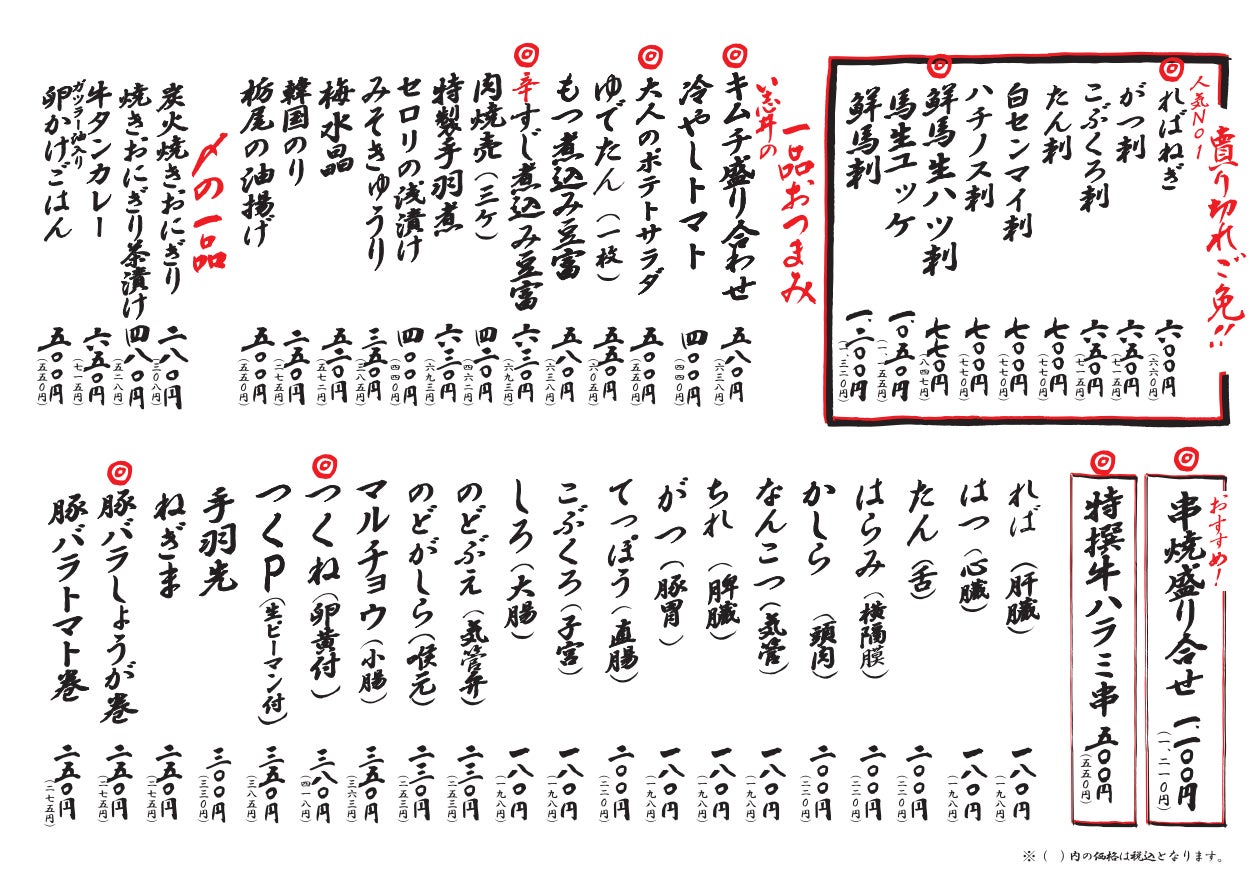 賣り切れご免!!
人気NO1
ればねぎ 六〇〇円（六六〇円）
がつ刺
こぶくろ刺 六五〇円（七一五円）
たん刺 七〇〇円（七七〇円）
白センマイ刺 七〇〇円（七七〇円）
ハチノス刺 七〇〇円（七七〇円）
鮮馬生ハツ刺 七七〇円（八四七円）
馬生ユッケ 一、〇五〇円（一、一五五円）
鮮馬刺 一、二〇〇円（一、三二〇円）
い志井の
一品おつまみ
キムチ盛り合わせ 五八〇円（六三八円）
冷やしトマト 四〇〇円（四四〇円）
大人のポテトサラダ 五〇〇円（五五〇円）
ゆでたん（一枚） 五五〇円（六〇五円）
もつ煮込み豆富 五八〇円（六三八円）
辛すじ煮込み豆富 六三〇円（六九三円）
肉焼売（三ケ） 四二〇円（四六二円）
特製手羽煮 六三〇円（六九三円）
セロリの浅漬け 四〇〇円（四四〇円）
みそきゅうり 三五〇円（三八五円）
梅水晶 五二〇円（五七二円）
韓国のり 二五〇円（二七五円）
栃尾の油揚げ 五〇〇円（五五〇円）
〆の一品
炭火焼きおにぎり 二八〇円（三〇八円）
焼きおにぎり茶漬け 四八〇円（五二八円）
牛タンカレー 六五〇円（七一五円）
ガツラー油入り
卵かけごはん 五〇〇円（五五〇円）
おすすめ！
串焼盛り合せ 一、一〇〇円（一、二一〇円）
特撰牛ハラミ串 五〇〇円（五五〇円）
れば（肝臓） 一八〇円（一九八円）
はつ（心臓） 一八〇円（一九八円）
たん（舌） 二〇〇円（二二〇円）
はらみ（横隔膜） 二〇〇円（二二〇円）
かしら（頭肉） 二〇〇円（二二〇円）
なんこつ（気管） 一八〇円（一九八円）
ちれ（脾臓） 一八〇円（一九八円）
がつ（豚胃） 一八〇円（一九八円）
てっぽう（直腸） 二〇〇円（二二〇円）
こぶくろ（子宮） 一八〇円（一九八円）
しろ（大腸） 一八〇円（一九八円）
のどぶえ（気管弁） 二三〇円（二五三円）
のどがしら（喉元） 二三〇円（二五三円）
マルチョウ（小腸） 三五〇円（三六三円）
つくね（卵黄付） 三八〇円（四一八円）
つくP（生ピーマン付） 三五〇円（三八五円）
手羽先 三〇〇円（三三〇円）
ねぎま 二五〇円（二七五円）
豚バラしょうが巻 二五〇円（二七五円）
豚バラトマト巻 二五〇円（二七五円）
※（　）内の価格は税込となります。